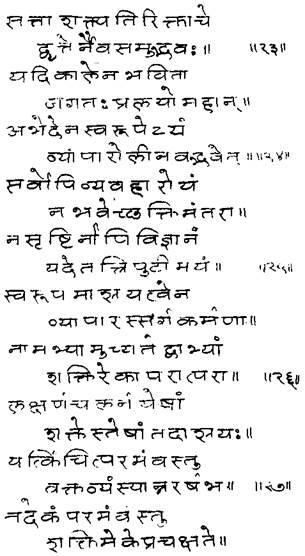 सत्ता शक्त्यतिरिक्ताचे
द्वृत्तेर्नैवसमुद्भवः॥ ॥२३॥
यदिकालेन भविता
जगतःप्रलयोमहान्॥
अभेदेनस्वरूपेऽयं
व्यापारोलीनवद्भवेत्॥॥२४॥
सर्वोपिव्यवहारोयं
नभवेच्छक्तिमंतरा॥
नसृष्टिर्नापिविज्ञानं
यदेतत्त्रिपुटीमयं॥ ॥२५॥
स्वरूपमाश्रयत्वेन
व्यापारस्सर्गकर्मणा॥
नामभ्यामुच्यतेद्वाभ्यां
शक्तिरेकापरात्परा॥ ॥२६॥
लक्षणंचलनंयेषां
शक्तेस्तेषांतदाश्रयः॥
यत्किंचित्परमंवस्तु
वक्तव्यंस्यान्नरर्षभ॥ ॥२७॥
तदेकंपरमंवस्तु
शक्तिमेकेप्रचक्षते॥